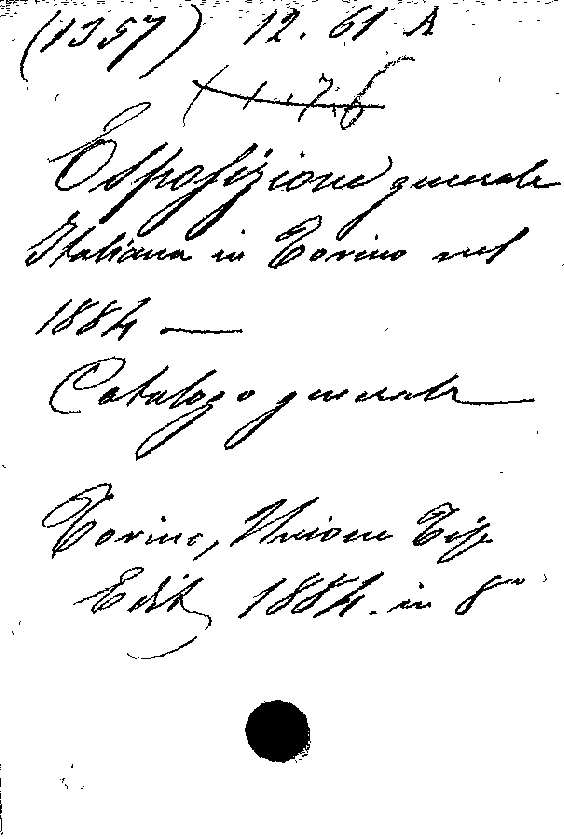 (1357) 12. 61 A
Esposizione generale
Italiana in Torino nel
1884 —
Catalogo generale
Torino, Unione Tip
Edit 1884. in 8°